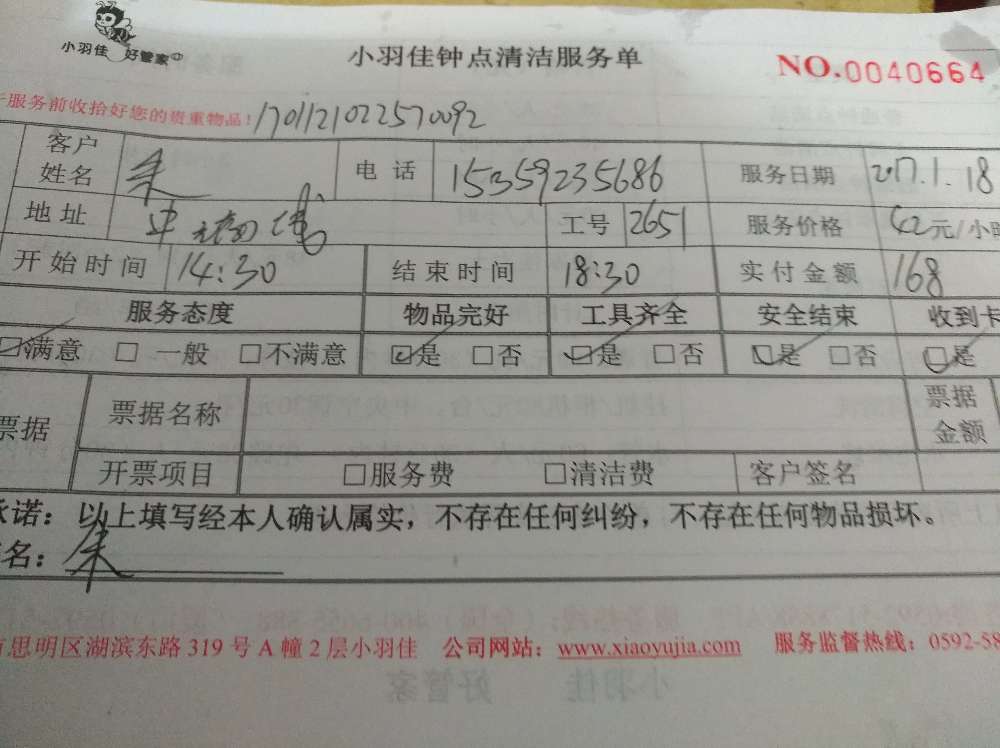 小羽佳 好管家
小羽佳钟点清洁服务单
NO.0040664
服务前收拾好您的贵重物品! 1701121022570092
客户姓名 朱 电话 15359235686 服务日期 2017.1.18
地址 工号 2651 服务价格 42元/小时
开始时间 14:30 结束时间 18:30 实付金额 168
服务态度 物品完好 工具齐全 安全结束 收到卡
☑满意 □一般 □不满意 ☑是 □否 ☑是 □否 ☑是 □否 ☑是
票据 票据名称 票据金额
开票项目 □服务费 □清洁费 客户签名
承诺：以上填写经本人确认属实，不存在任何纠纷，不存在任何物品损坏。
名：朱
思明区湖滨东路319号A幢2层小羽佳 公司网站：www.xiaoyujia.com 服务监督热线：0592-58